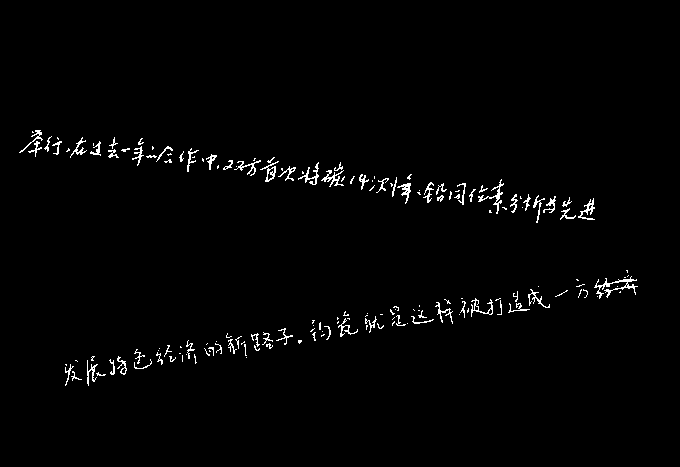 举行。在过去一年的合作中，双方首次将碳14测年、铅同位素分析等先进
发展特色经济的新路子。钧瓷就是这样被打造成一方